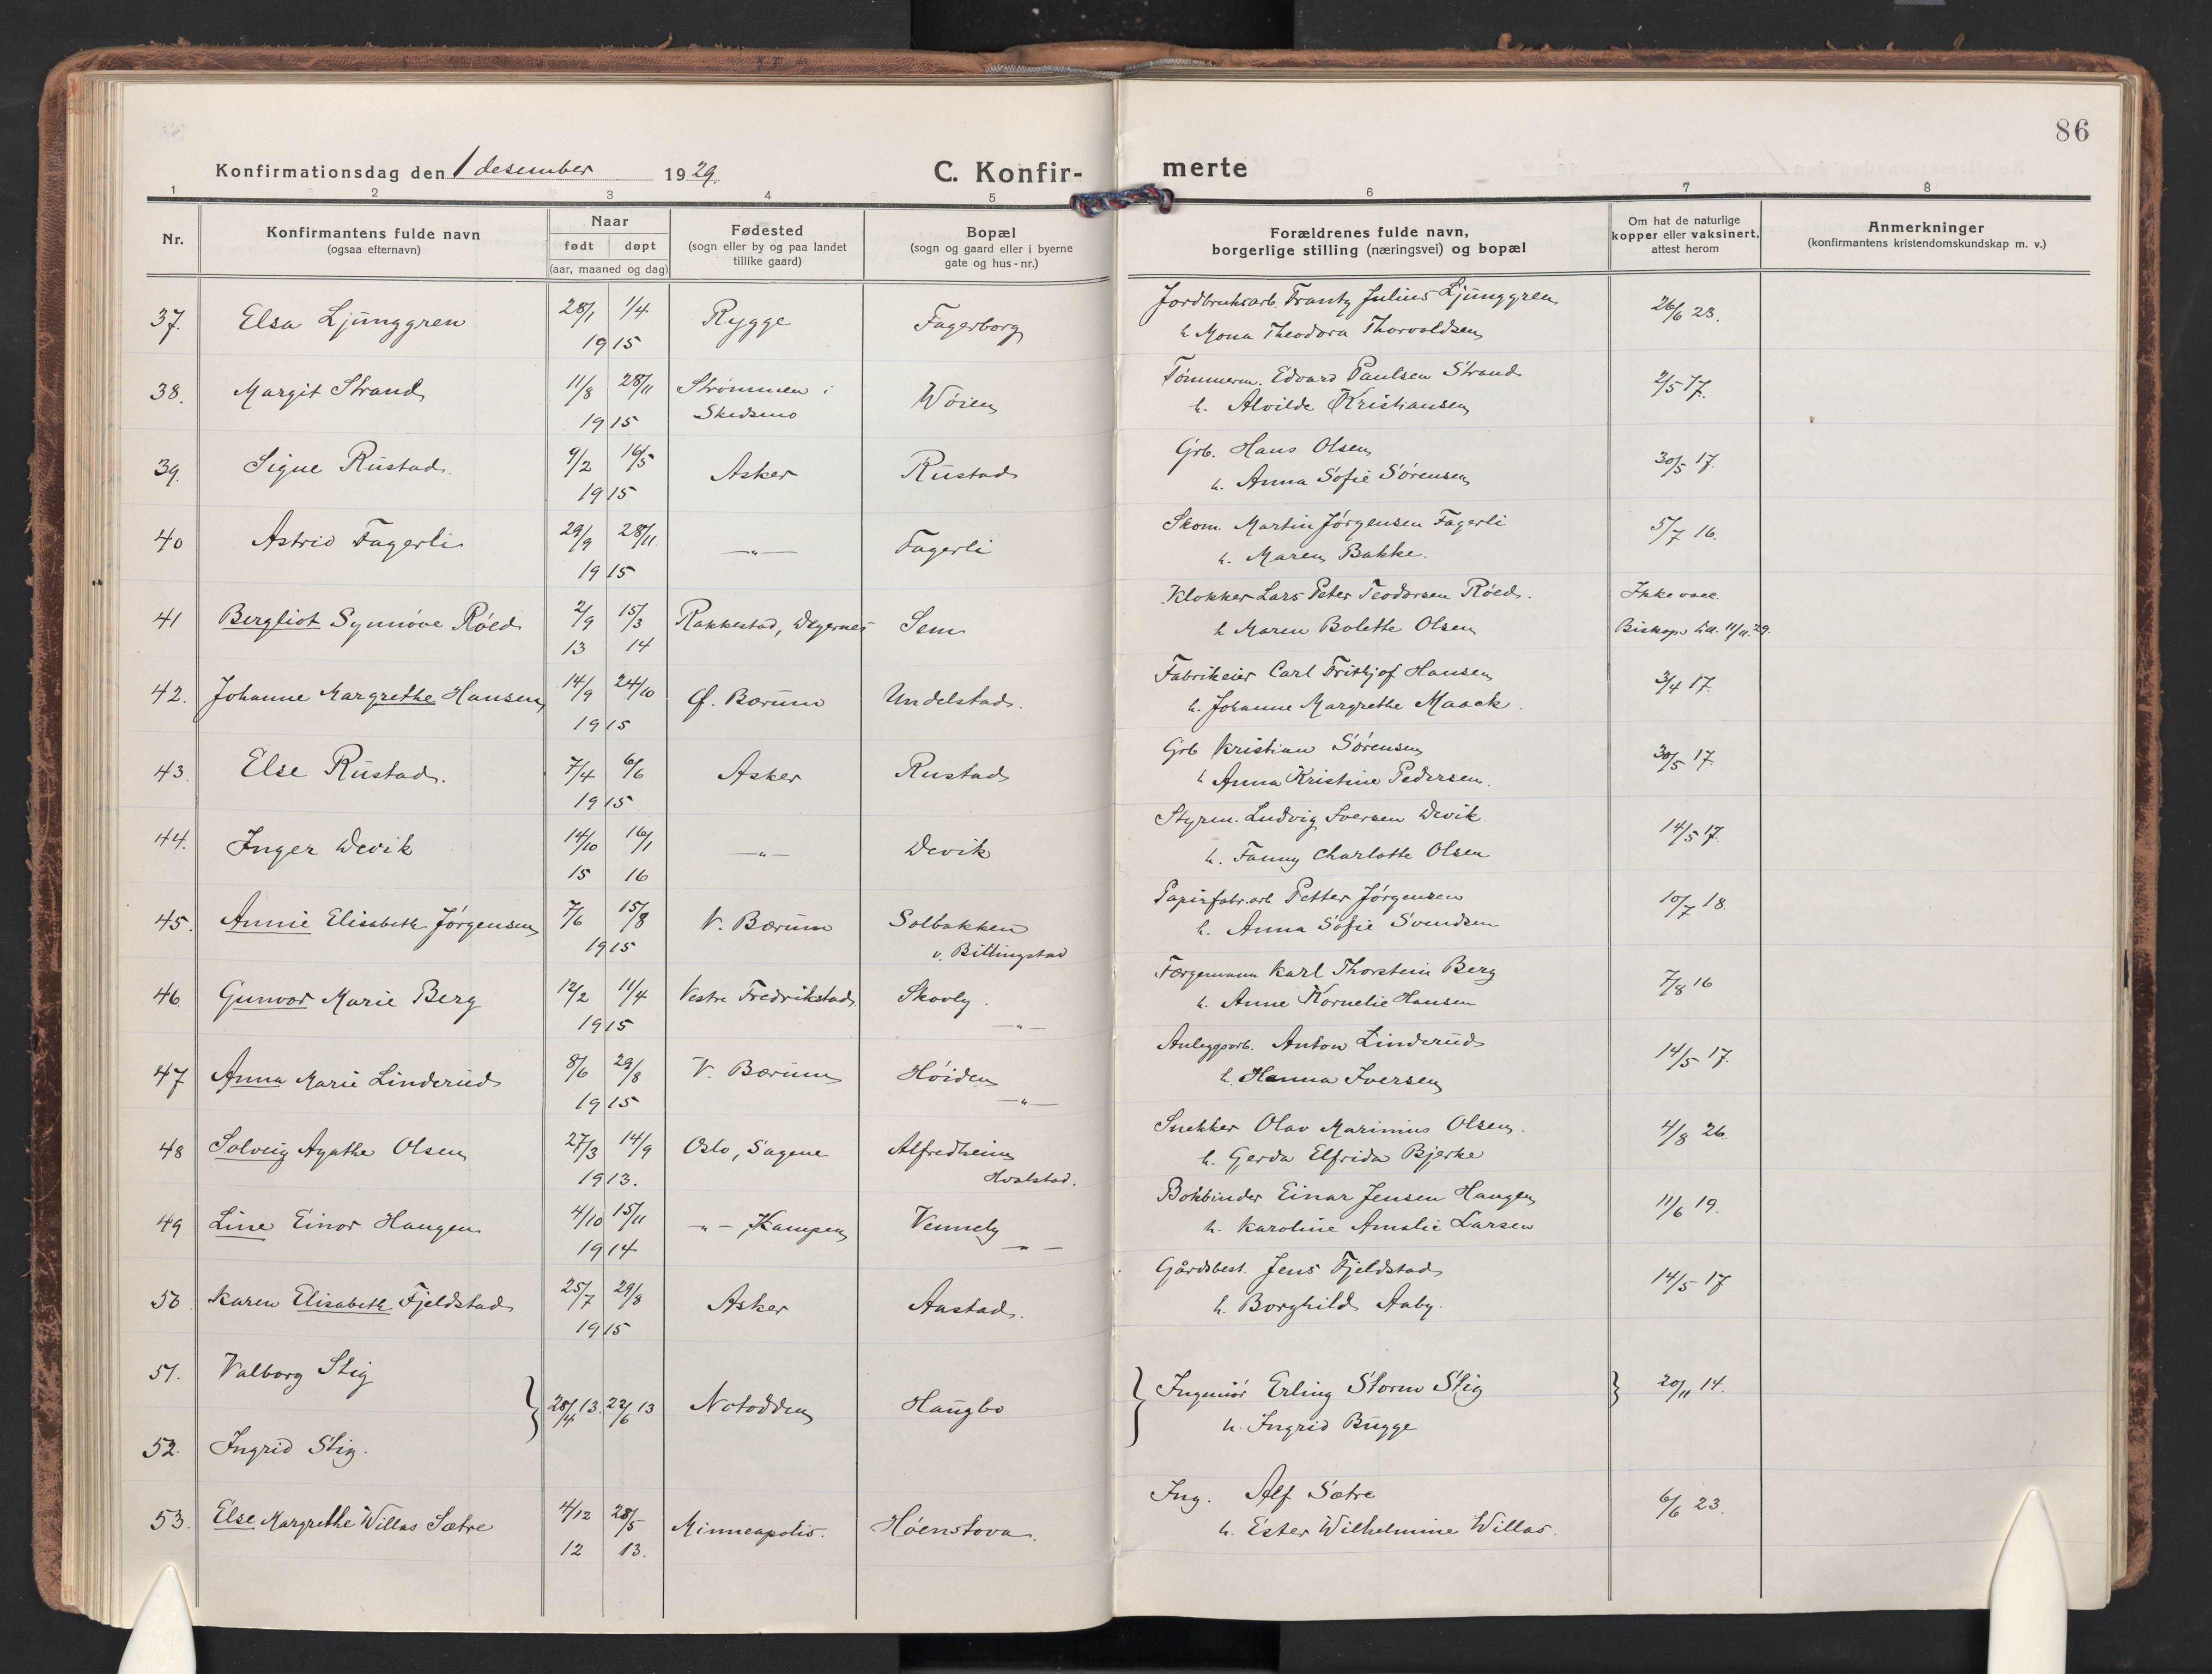 86
Konfirmationsdag den 1 desember 1929.
C. Konfirmerte
1 2 3 4 5 6 7 8
Nr.
Konfirmantens fulde navn
(ogsaa efternavn)
Naar
født døpt
(aar, maaned og dag)
Fødested
(sogn eller by og paa landet
tillike gaard)
Bopæl
(sogn og gaard eller i byerne
gate og hus-nr.)
Forældrenes fulde navn,
borgerlige stilling (næringsvei) og bopæl
Om hat de naturlige
kopper eller vaksinert,
attest herom
Anmerkninger
(konfirmantens kristendomskundskap m. v.)
37. Elsa Ljunggren 28/1 1/4 1915 Rygge Fagerborg Jordbruksarb. Frantz Julius Ljunggren 26/6 23.
h. Mona Theodora Thorvaldsen
38. Margit Strand 11/8 28/11 1915 Strømmen i Skedsmo Wøien Tømmerm. Edvard Paulsen Strand 2/5 17.
h. Alvilde Kristiansen
39. Signe Rustad. 9/2 16/5 1915 Asker Rustad Grb. Hans Olsen 30/5 17.
h. Anna Sofie Sørensen
40 Astrid Fagerli 29/9 28/11 1915 —"— Fagerli Skom. Martin Jørgensen Fagerli 5/7 16.
h. Maren Bakke.
41 Bergliot Synnøve Røed 2/9 13 15/3 14 Rakkestad, Degernes Sem Klokker Lars Peter Teodorsen Røed. Ikke vacc.
h Maren Bolette Olsen Biskops till. 11/11.29.
42. Johanne Margrethe Hansen 14/9 24/10 1915 Ø. Bærum Undelstad. Fabrikeier Carl Fritjof Hansen 3/4 17.
h. Johanne Margrethe Maack.
43. Else Rustad. 7/4 6/6 1915 Asker Rustad Grb Kristian Sørensen 30/5 17.
h Anna Kristine Pedersen.
44. Inger Devik 14/10 15 16/1 16 —"— Devik Styrm. Ludvig Iversen Devik. 14/5 17.
h. Fanny Charlotte Olsen
45. Annie Elisabeth Jørgensen 7/6 15/8 1915 V. Bærum Solbakken v. Billingstad Papirfabr.arb Petter Jørgensen 10/7 18.
h. Anna Sofie Svendsen
46. Gunvor Marie Berg 12/2 11/4 1915 Vestre Fredrikstad Skovly. —"— Færgemann Karl Thorstein Berg 7/8 16
h. Anne Kornelie Hansen
47 Anna Marie Linderud 8/6 29/8 1915 V. Bærum Høiden —"— Anleggsarb. Anton Linderud 14/5 17.
h. Hanna Iversen
48 Solveig Agathe Olsen 27/3 14/9 1913. Oslo, Sagene Alfredheim Hvalstad. Snekker Olav Marinius Olsen. 4/8 26.
h. Gerda Elfrida Bjerke
49 Line Einor Haugen 4/10 15/11 1914 —"— Kampen Vennely —"— Bokbinder Einar Jensen Haugen 11/6 19.
h. Karoline Amalie Larsen
50 Karen Elisabeth Fjeldstad 25/7 29/8 1915 Asker Aastad. Gårdsbest. Jens Fjeldstad 14/5 17
h. Borghild Aaby.
51. Valborg Stig
28/4 13. 22/6 13 Notodden Haugbo Ingeniør Erling Storm Stig 20/11 14.
h. Ingrid Bugge
52. Ingrid Stig.
53. Else Margrethe Willas Sætre 4/12 12 28/5 13. Minneapolis. Høenstova. Ing. Alf Sætre 6/6 23.
h. Ester Wilhelmine Willas.